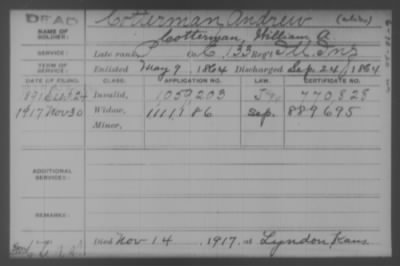 DEAD
Cotterman Andrew (alias)
NAME OF SOLDIER:
Cotterman, William A.
SERVICE:
Late rank Co. C, 133 Reg't Ill. Inf
TERM OF SERVICE:
Enlisted May 9, 1864 Discharged Sep. 24, 1864
DATE OF FILING. CLASS. APPLICATION NO. LAW. CERTIFICATE NO.
1891 24 Invalid, 1059,203 770,828
1917 Nov 30 Widow, 1111,186 Sep. 889,695
Minor,
ADDITIONAL SERVICES:
REMARKS:
Died Nov 14, 1917, at Lyndon Kans